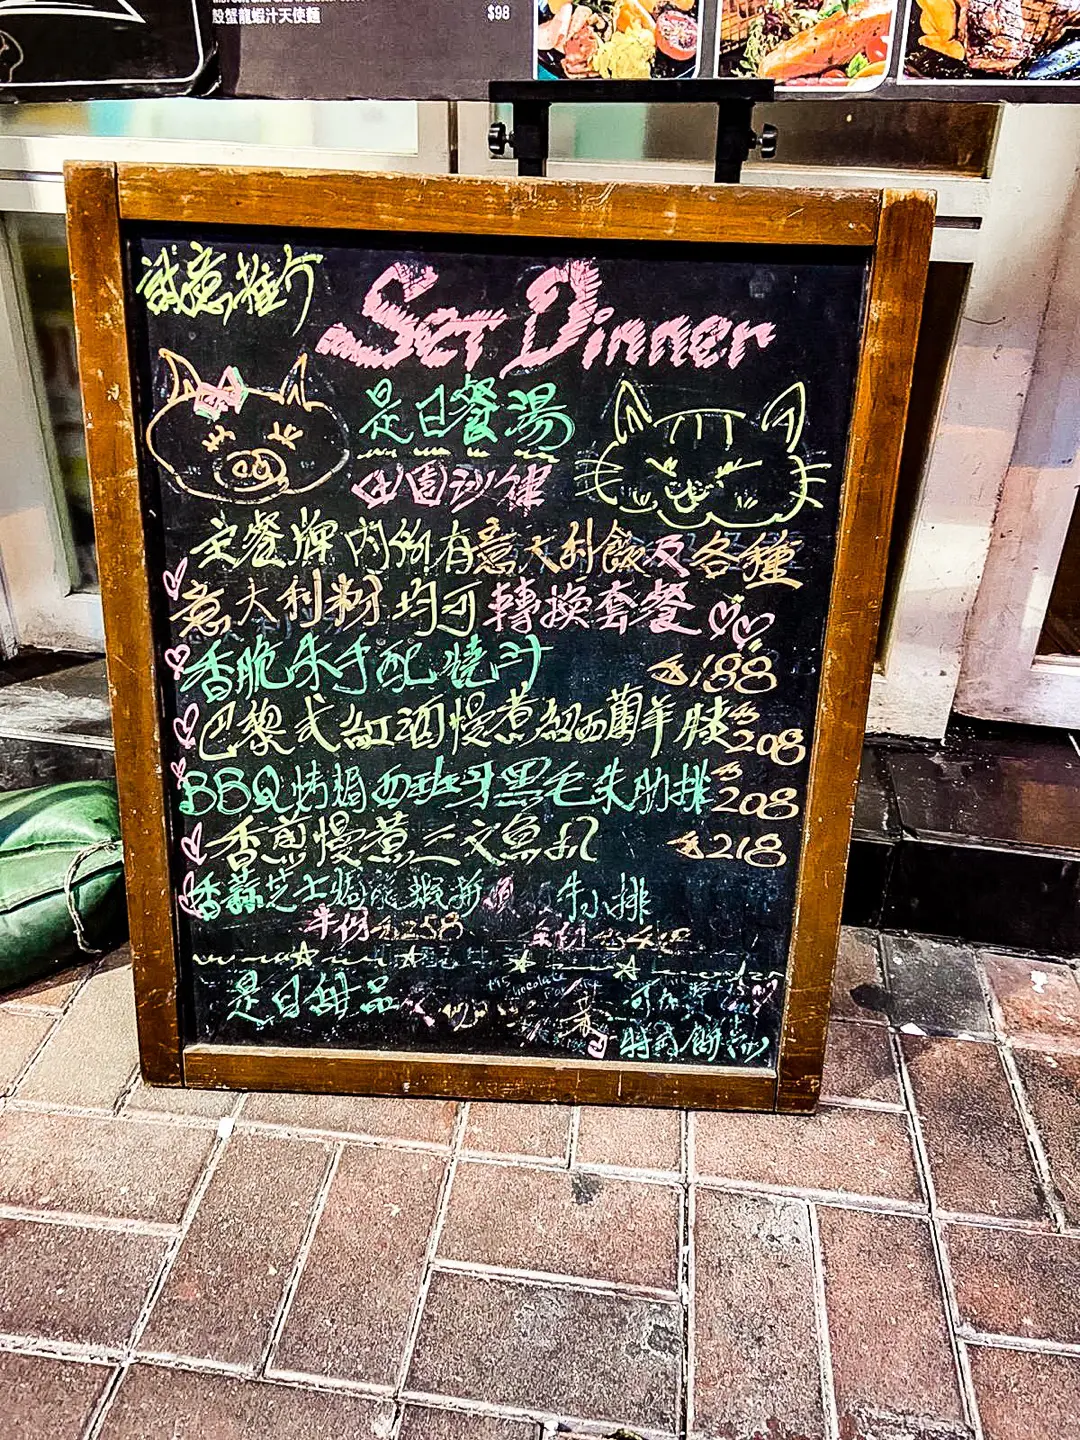 殼蟹龍蝦汁天使麵 $98
誠意推介
Set Dinner
是日餐湯
田園沙律
主餐牌內所有意大利飯及各種
意大利粉均可轉換套餐
香脆朱手配燒汁 $188
巴黎式紅酒慢煮紐西蘭羊膝 $208
BBQ烤焗西班牙黑毛朱肋排 $208
香煎慢煮三文魚扒 $218
香蒜芝士焗龍蝦拼 牛小排
半份 $258
是日甜品